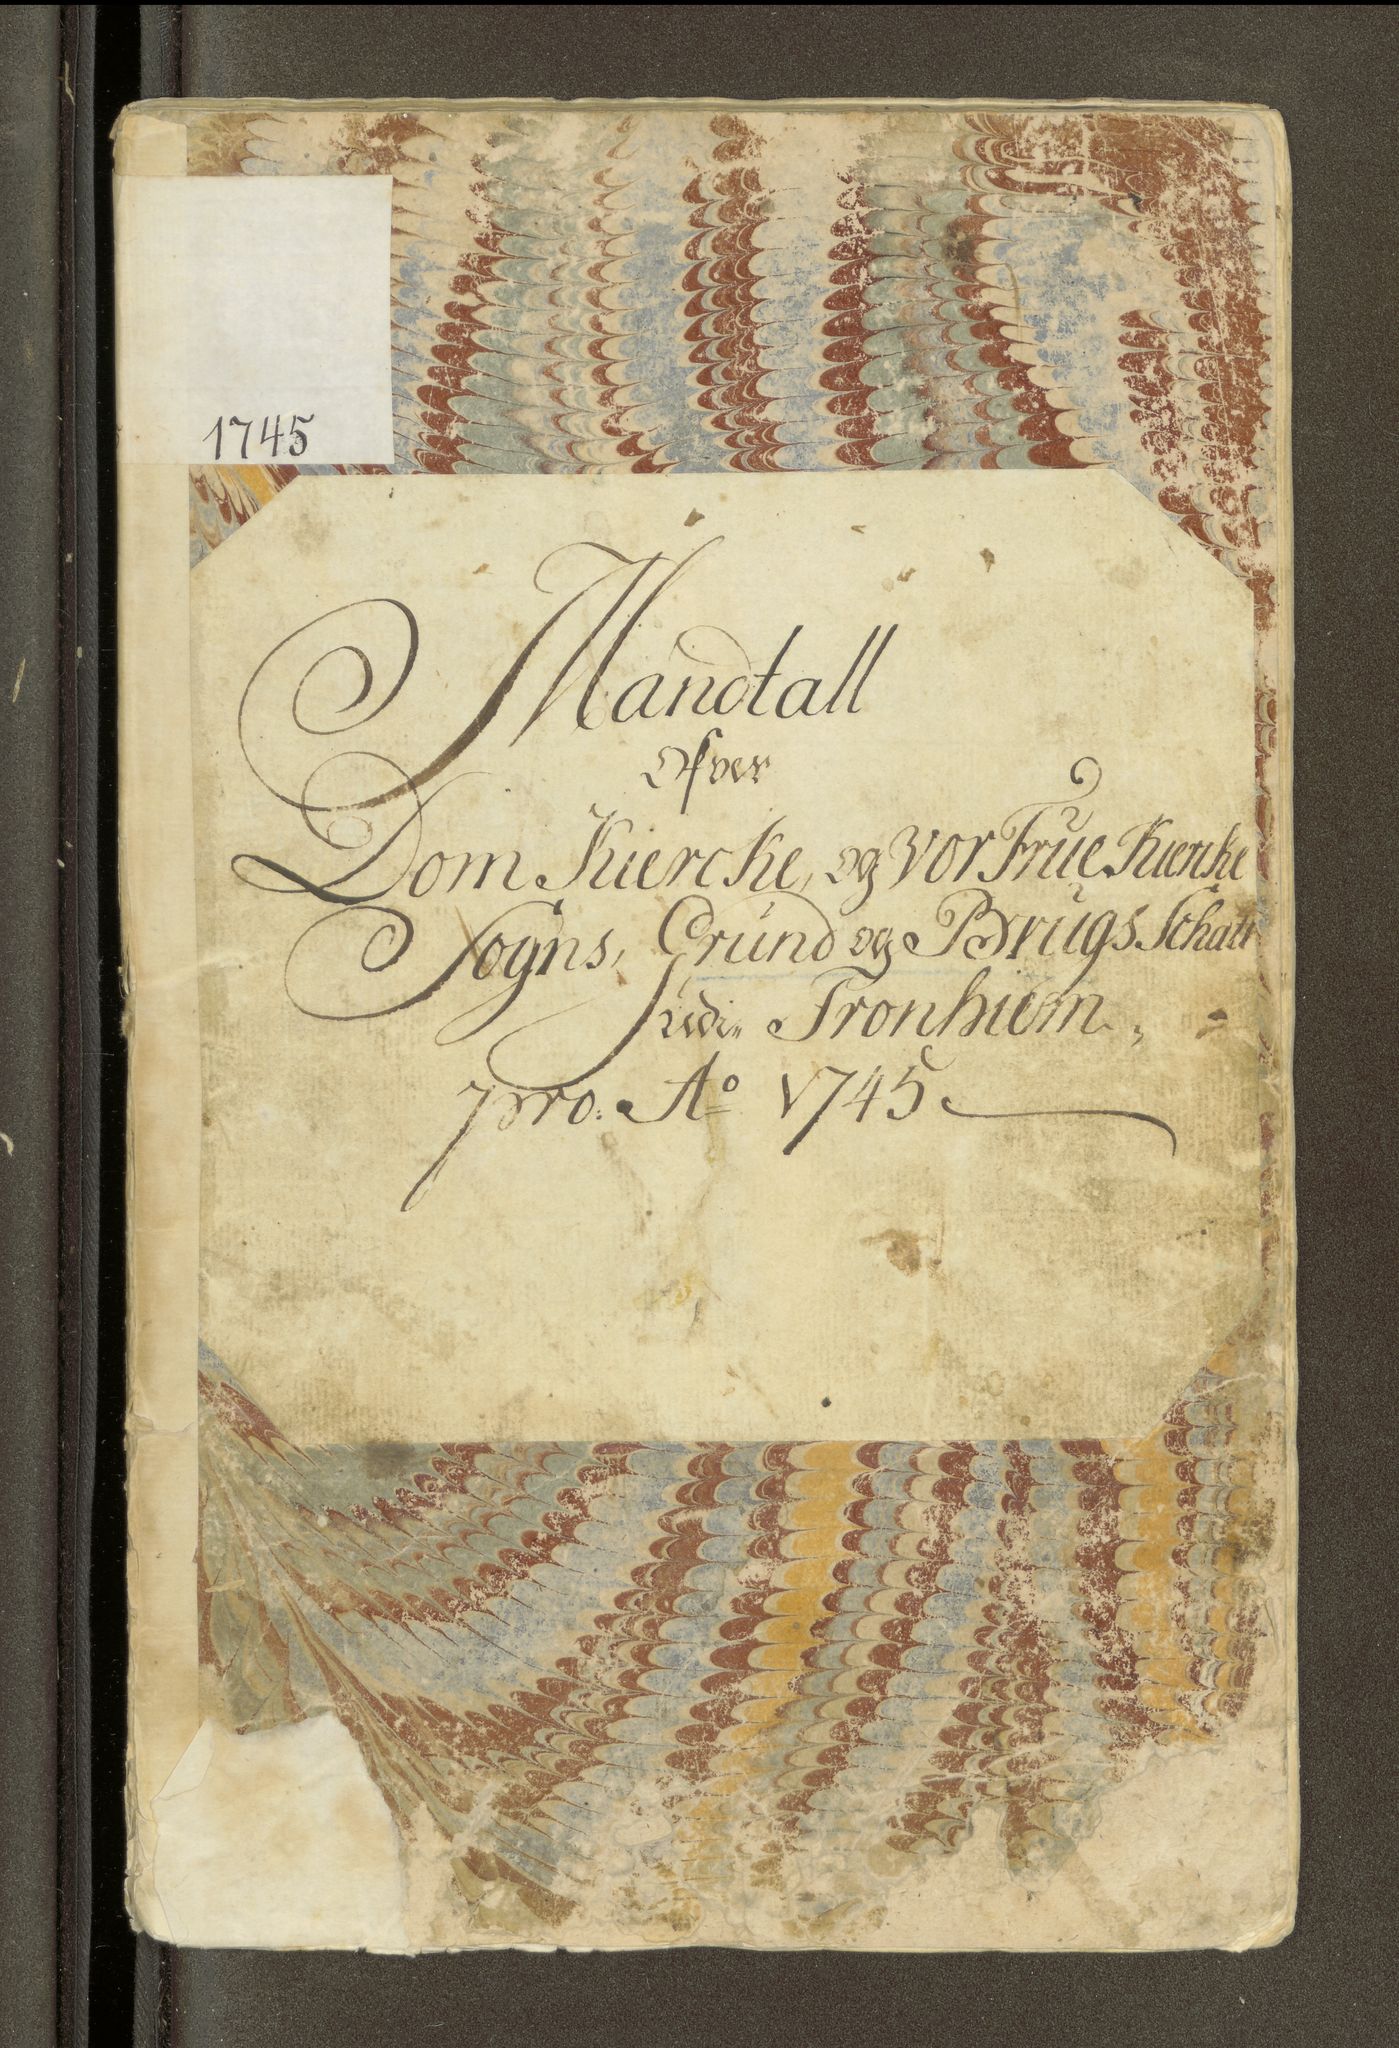 1745
Mandtall
Ofver
Dom Kiercke, og Vor Frúe Kiercke
Sogns, Grúnd og Brúgs Schatt
udi Tronhiem.
pro. Ao 1745